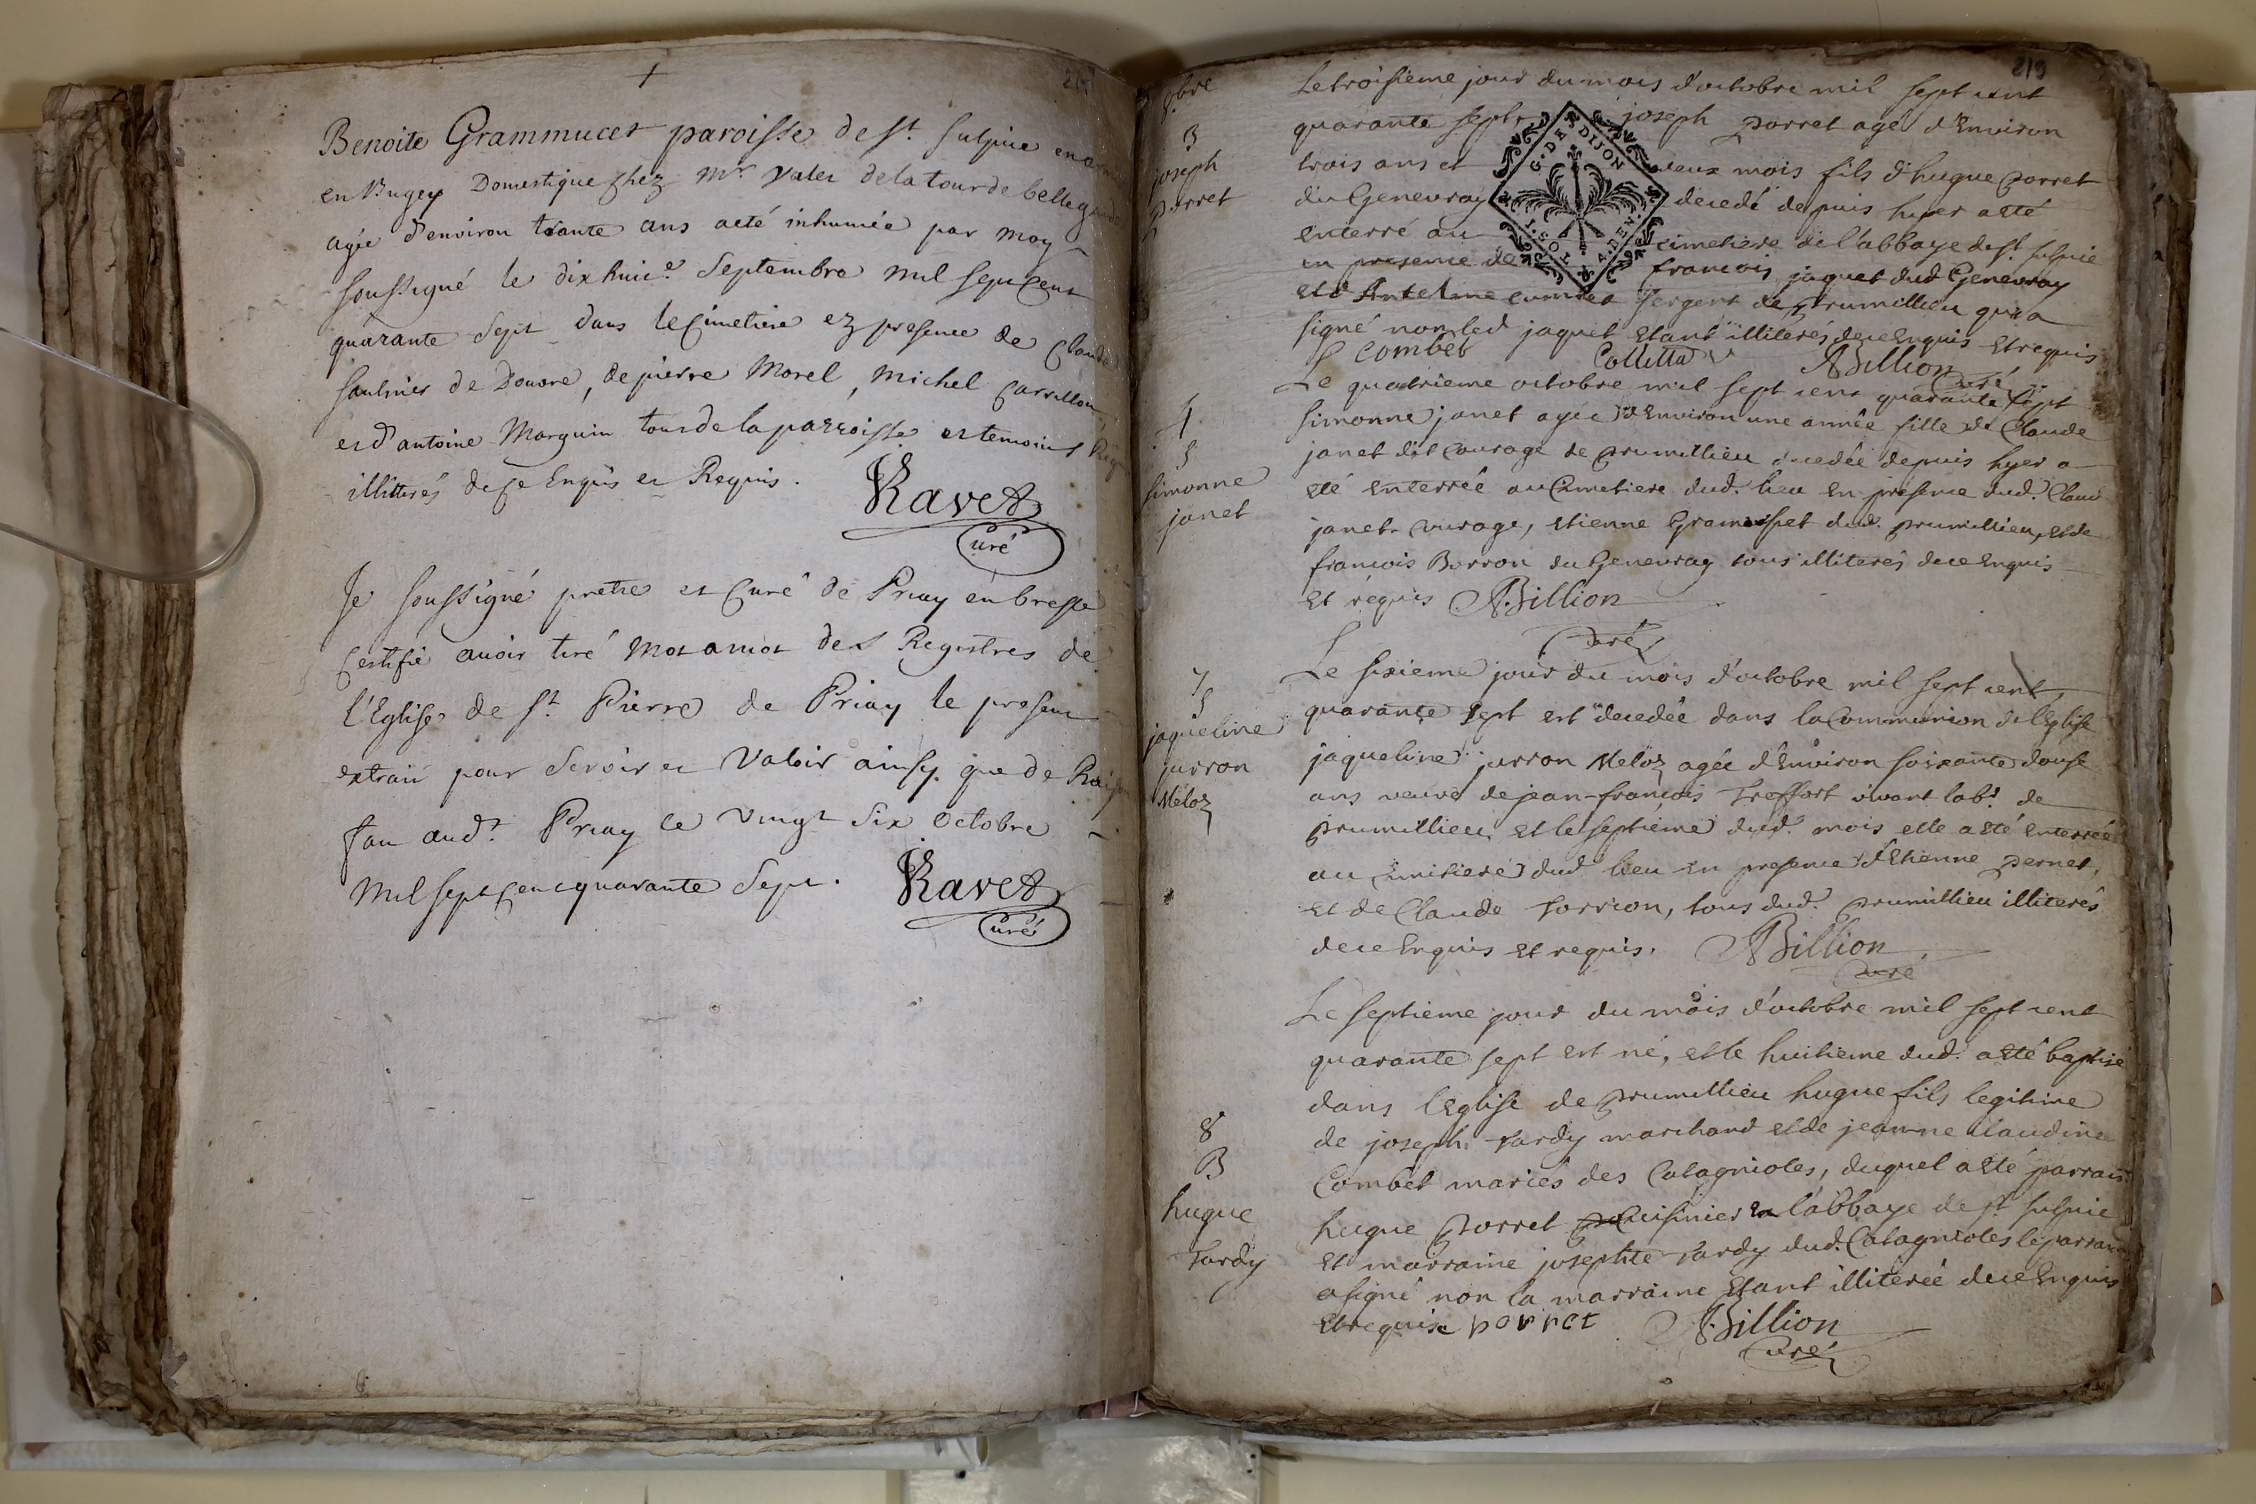 Benoite Grammucet paroisse de st. Sulpice
en Bugey Domestique chez mr. Valer de la tour de bellegarde
agée d'environ trante ans aété inhumée par moy
soussigné le dix huit.e Septembre mil sept Cent
quarante Sept dans le Cimetiere ez presence de Claude
saulnier de Douvre, de pierre Morel, Michel
et d'antoine Marguin tous de la parroisse et temoins
illitterés de ce Enquis et Requis.
Ravet
Curé
Je soussigné pretre et Curé de Priay en bresse
Certifie avoir tiré mot amot des Registres de
l'Eglise de st. Pierre de Priay le present
extrait pour servir et Valoir ainsy que de Raison
fau aud.t Priay ce vingt Six Octobre
mil sept Cent quarante Sept.
Ravet
Curé
219
8bre
3
joseph
porret
Le troisieme jour du mois d'octobre mil sept cent
quarante sept joseph porret agé d'Environ
trois ans et deux mois fils d'hugue porret
du Genevray decedé depuis hyer aété
enterré au cimetiere de l'abbaye de st. sulpice
en presence de francois jaquet dud Genevray
et d'Antelme combet sergent de prumillieu qui a
signé non led jaquet Etant illiteré de ce enquis et requis
G. DE DIJON
combet
Collitta
ABillion
Curé
4
S
simonne
janet
Le quatrieme octobre mil sept cent quarante sept
simonne janet agée d'Environ une année fille de Claude
janet dit Courage de prumillieu decedée depuis hyer a
eté enterrée au Cimetiere dud. lieu en presence dud. Claud
janet courage, etienne Gramusset dud. prumillieu, et de
francois Borron du Genevray tous illiterés de ce enquis
et requis ABillion
Curé
7
S
jaqueline
jurron
Meloz
Le sixieme jour du mois d'octobre mil sept cent
quarante sept est decedée dans la Communion de l'Eglise
jaqueline jurron Meloz agée d'Environ soixante douse
ans veuve de jean-francois Treffort vivant lab.r de
prumillieu et le septieme dud. mois elle a eté enterrée
au cimitiere dud lieu en presence d'Etienne pernet,
et de Claude Torrion, tous dud. prumillieu illiterés
de ce enquis et requis. ABillion
Curé
8
B
hugue
Tardy
Le septieme jour du mois d'octobre mil sept cent
quarante sept est né, et le huitieme dud. aété baptisé
dans l'Eglise de prumillieu hugue fils legitime
de joseph Tardy marchand et de jeanne claudine
Combet mariés des Catagnioles, duquel aété parrain
hugue porret cuisinier en l'abbaye de st sulpice
et marraine josephte Tardy dud. Catagnioles le parrain
a signé non la marraine Etant illiterée de ce enquis
et requise porret ABillion
Curé